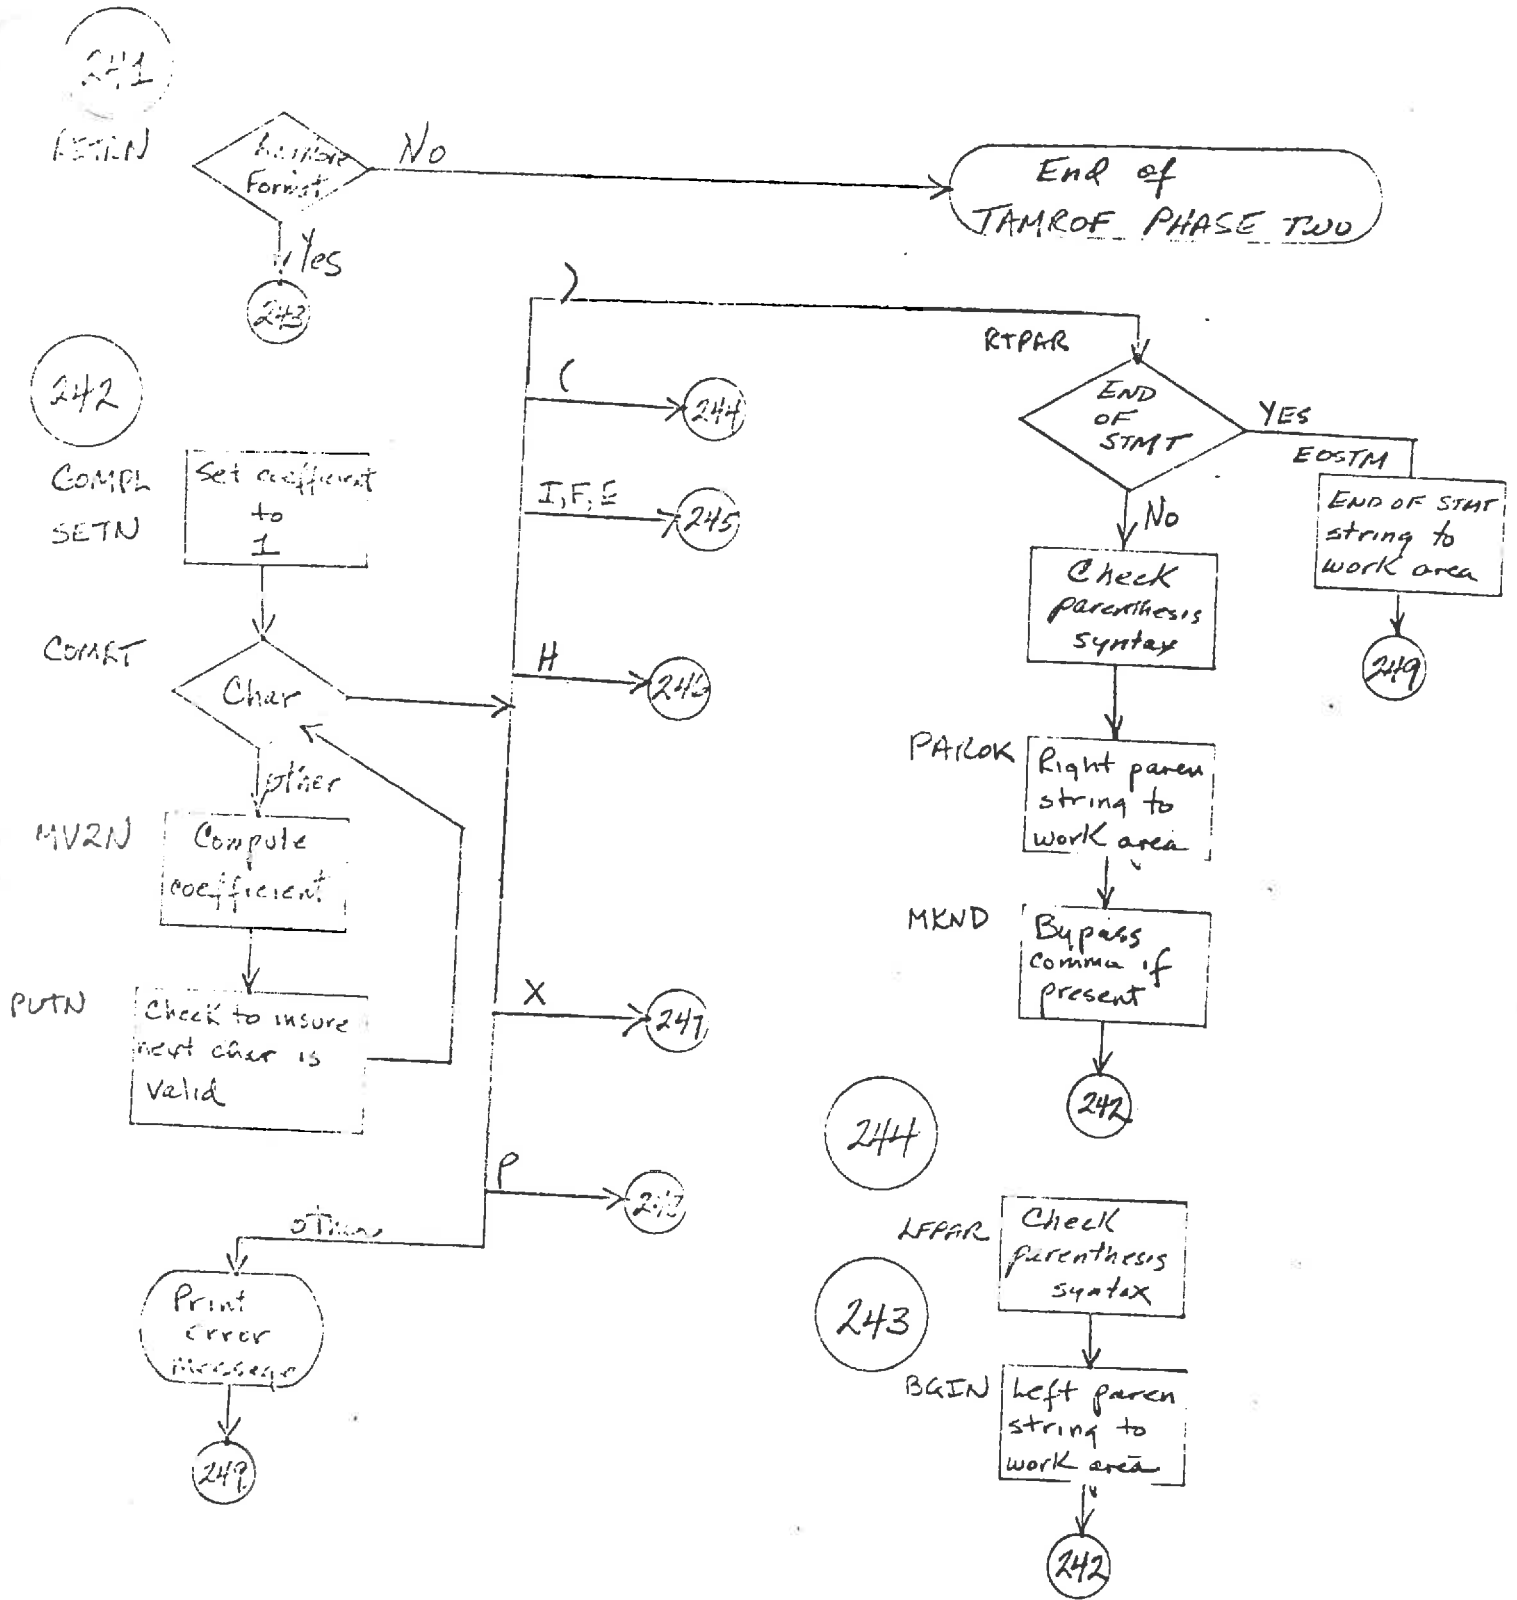 241
RETRN
Format
No
Yes
243
End of
TAMROF PHASE TWO
242
COMPL
SETN
Set coefficient
to
1
COMRT
Char
other
MV2N
Compute
coefficient
PUTN
Check to insure
next char is
valid
)
(
244
I, F, E
245
H
246
X
247
P
other
Print
error
message
249
RTPAR
END
OF
STMT
YES
EOSTM
END OF STMT
string to
work area
249
No
Check
parenthesis
syntax
PAROK
Right paren
string to
work area
MKND
Bypass
comma if
present
242
244
LFPAR
Check
parenthesis
syntax
243
BGIN
Left paren
string to
work area
242